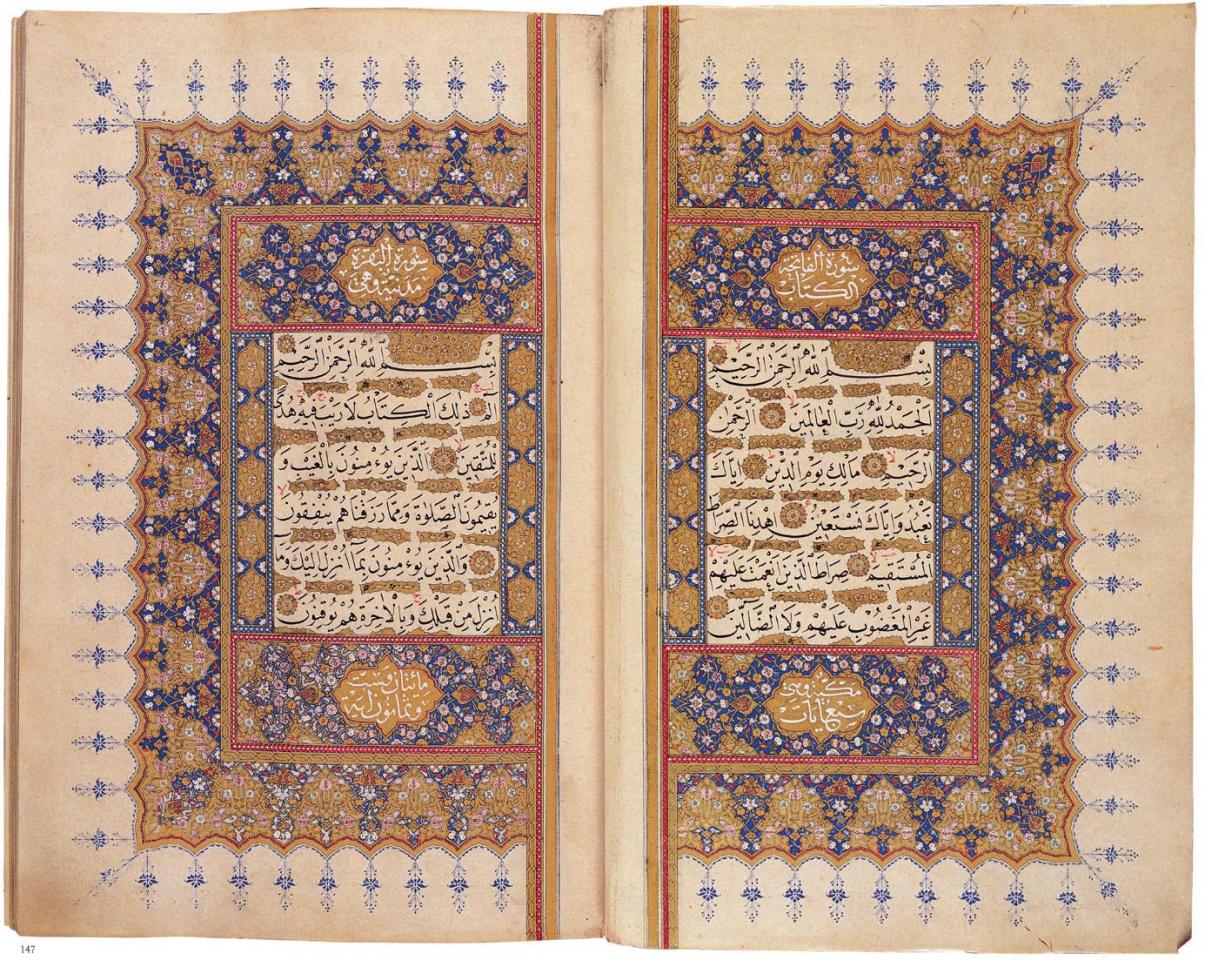 سورة الفاتحة
الكتاب
بسم الله الرحمن الرحيم
الحمد لله رب العالمين الرحمن
الرحيم مالك يوم الدين اياك
نعبد واياك نستعين اهدنا الصراط
المستقيم صراط الذين انعمت عليهم
غير المغضوب عليهم ولا الضالين
مكية وهي
سبع ايات
سورة البقرة
مدنية وهي
بسم الله الرحمن الرحيم
الم ذلك الكتاب لا ريب فيه هدى
للمتقين الذين يؤمنون بالغيب و
يقيمون الصلوة ومما رزقناهم ينفقون
والذين يؤمنون بما انزل اليك وما
انزل من قبلك وبالاخرة هم يوقنون
مائتان وست
وثمانون اية
147